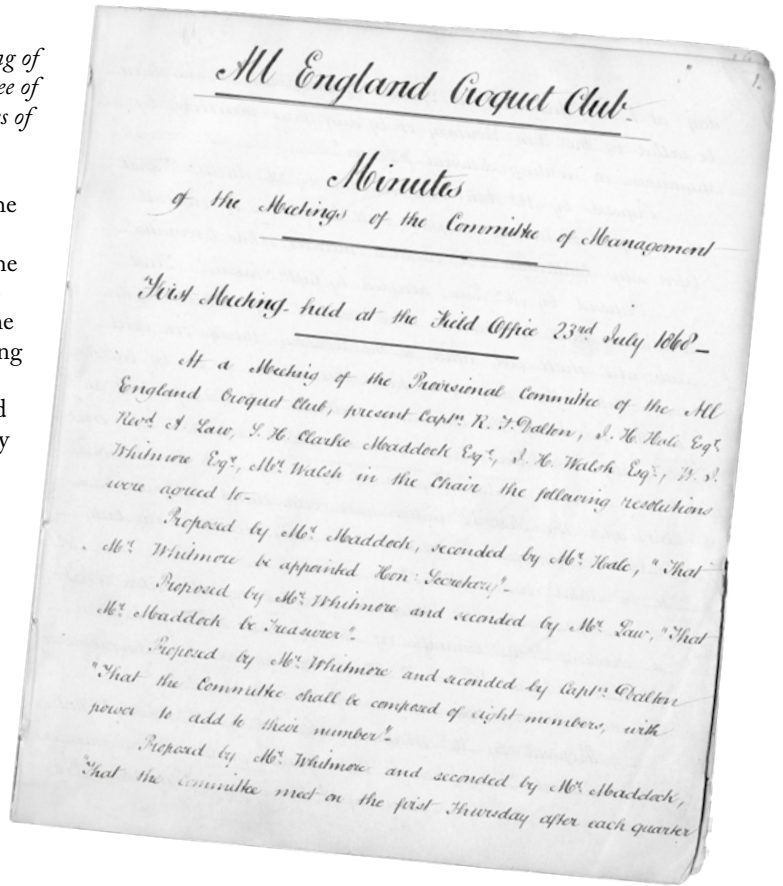 ng of
ee of
s of
ne
ne
ne
ng
d
y
1.
All England Croquet Club.
Minutes
of the Meetings of the Committee of Management
First Meeting held at the Field Office 23rd July 1868—
At a Meeting of the Provisional Committee of the All
England Croquet Club, present Captn R. F. Dalton, J. H. Hale Esqr,
Revd A. Law, S. H. Clarke Maddock Esqr, J. H. Walsh Esqr, W. J.
Whitmore Esqr, Mr Walsh in the Chair the following resolutions
were agreed to—
Proposed by Mr Maddock, seconded by Mr Hale, "That
Mr Whitmore be appointed Hon: Secretary"—
Proposed by Mr Whitmore and seconded by Mr Law, "That
Mr Maddock be Treasurer"—
Proposed by Mr Whitmore and seconded by Captn Dalton
"That the Committee shall be composed of eight members, with
power to add to their number"—
Proposed by Mr Whitmore and seconded by Mr Maddock,
"That the Committee meet on the first Thursday after each quarter